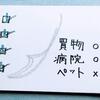 買物 ○
病院 ○
ペット ×